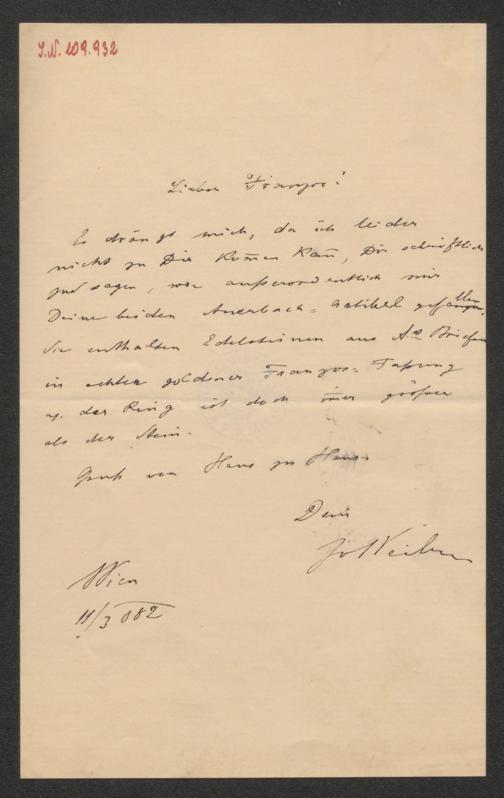 I.N. 109.932
Lieber Franzos!
Es drängt mich, da ich leider
nicht zu Dir kom̄en kan̄, Dir schriftlich
zu sagen, wie außerordentlich mir
Deine beiden Auerbach-Artikel gefallen.
Sie enthalten Edelsteine aus A.s Briefen
in echter goldener Franzos-Faßung
u. der Ring ist doch im̄er größer
als der Stein.
Gruß von Haus zu Haus
Dein
Jos Weilen
Wien
11/3 882